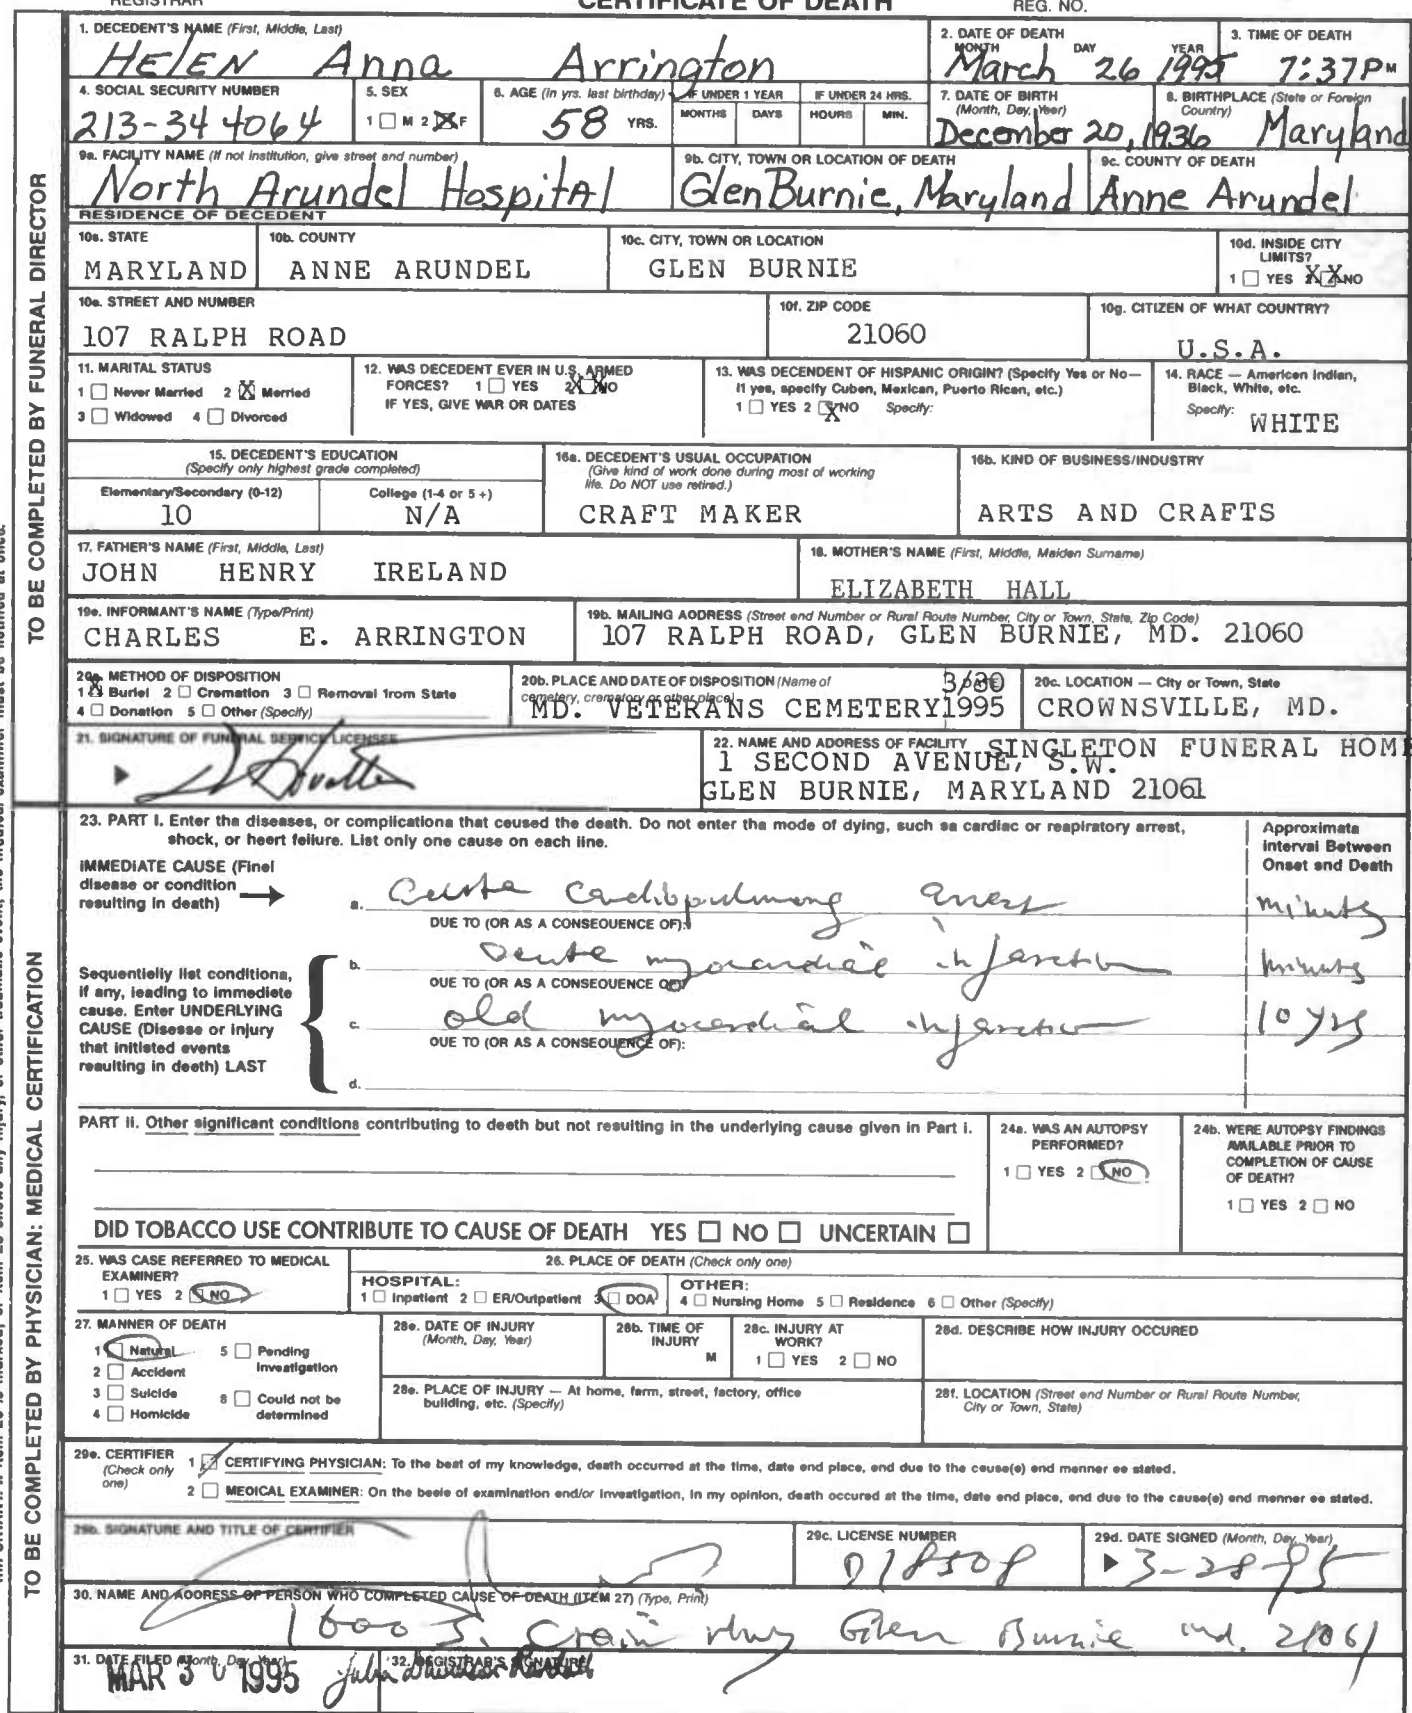 REGISTRAR CERTIFICATE OF DEATH REG. NO.
1. DECEDENT'S NAME (First, Middle, Last)
HELEN Anna Arrington
2. DATE OF DEATH
MONTH DAY YEAR
March 26 1995
3. TIME OF DEATH
7:37 PM
4. SOCIAL SECURITY NUMBER
213-34 4064
5. SEX
1 M 2 X F
6. AGE (In yrs. last birthday)
58 YRS.
IF UNDER 1 YEAR
MONTHS DAYS
IF UNDER 24 HRS.
HOURS MIN.
7. DATE OF BIRTH
(Month, Day, Year)
December 20, 1936
8. BIRTHPLACE (State or Foreign
Country)
Maryland
9a. FACILITY NAME (If not institution, give street and number)
North Arundel Hospital
9b. CITY, TOWN OR LOCATION OF DEATH
Glen Burnie, Maryland
9c. COUNTY OF DEATH
Anne Arundel
RESIDENCE OF DECEDENT
10a. STATE
MARYLAND
10b. COUNTY
ANNE ARUNDEL
10c. CITY, TOWN OR LOCATION
GLEN BURNIE
10d. INSIDE CITY
LIMITS?
1 YES XX NO
10e. STREET AND NUMBER
107 RALPH ROAD
10f. ZIP CODE
21060
10g. CITIZEN OF WHAT COUNTRY?
U.S.A.
11. MARITAL STATUS
1 Never Married 2 X Married
3 Widowed 4 Divorced
12. WAS DECEDENT EVER IN U.S. ARMED
FORCES? 1 YES 2 XX NO
IF YES, GIVE WAR OR DATES
13. WAS DECENDENT OF HISPANIC ORIGIN? (Specify Yes or No—
If yes, specify Cuban, Mexican, Puerto Rican, etc.)
1 YES 2 X NO Specify:
14. RACE — American Indian,
Black, White, etc.
Specify: WHITE
15. DECEDENT'S EDUCATION
(Specify only highest grade completed)
Elementary/Secondary (0-12)
10
College (1-4 or 5 +)
N/A
16a. DECEDENT'S USUAL OCCUPATION
(Give kind of work done during most of working
life. Do NOT use retired.)
CRAFT MAKER
16b. KIND OF BUSINESS/INDUSTRY
ARTS AND CRAFTS
17. FATHER'S NAME (First, Middle, Last)
JOHN HENRY IRELAND
18. MOTHER'S NAME (First, Middle, Maiden Surname)
ELIZABETH HALL
19a. INFORMANT'S NAME (Type/Print)
CHARLES E. ARRINGTON
19b. MAILING ADDRESS (Street and Number or Rural Route Number, City or Town, State, Zip Code)
107 RALPH ROAD, GLEN BURNIE, MD. 21060
20a. METHOD OF DISPOSITION
1 X Burial 2 Cremation 3 Removal from State
4 Donation 5 Other (Specify)
20b. PLACE AND DATE OF DISPOSITION (Name of
cemetery, crematory or other place)
3/30
MD. VETERANS CEMETERY 1995
20c. LOCATION — City or Town, State
CROWNSVILLE, MD.
21. SIGNATURE OF FUNERAL SERVICE LICENSEE
22. NAME AND ADDRESS OF FACILITY SINGLETON FUNERAL HOME
1 SECOND AVENUE, S.W.
GLEN BURNIE, MARYLAND 21061
TO BE COMPLETED BY FUNERAL DIRECTOR
23. PART I. Enter the diseases, or complications that caused the death. Do not enter the mode of dying, such as cardiac or respiratory arrest,
shock, or heart failure. List only one cause on each line.
Approximate
Interval Between
Onset and Death
IMMEDIATE CAUSE (Final
disease or condition
resulting in death)
a. Acute cardiopulmonary arrest minutes
DUE TO (OR AS A CONSEQUENCE OF):
Sequentially list conditions,
if any, leading to immediate
cause. Enter UNDERLYING
CAUSE (Disease or injury
that initiated events
resulting in death) LAST
b. acute myocardial infarction minutes
DUE TO (OR AS A CONSEQUENCE OF):
c. old myocardial infarction 10 yrs
DUE TO (OR AS A CONSEQUENCE OF):
d.
PART II. Other significant conditions contributing to death but not resulting in the underlying cause given in Part I.
24a. WAS AN AUTOPSY
PERFORMED?
1 YES 2 NO
24b. WERE AUTOPSY FINDINGS
AVAILABLE PRIOR TO
COMPLETION OF CAUSE
OF DEATH?
1 YES 2 NO
DID TOBACCO USE CONTRIBUTE TO CAUSE OF DEATH YES NO UNCERTAIN
25. WAS CASE REFERRED TO MEDICAL
EXAMINER?
1 YES 2 NO
26. PLACE OF DEATH (Check only one)
HOSPITAL:
1 Inpatient 2 ER/Outpatient 3 DOA
OTHER:
4 Nursing Home 5 Residence 6 Other (Specify)
27. MANNER OF DEATH
1 Natural 5 Pending
Investigation
2 Accident
3 Suicide 8 Could not be
determined
4 Homicide
28a. DATE OF INJURY
(Month, Day, Year)
28b. TIME OF
INJURY
M
28c. INJURY AT
WORK?
1 YES 2 NO
28d. DESCRIBE HOW INJURY OCCURED
28e. PLACE OF INJURY — At home, farm, street, factory, office
building, etc. (Specify)
28f. LOCATION (Street and Number or Rural Route Number,
City or Town, State)
29a. CERTIFIER
(Check only
one)
1 CERTIFYING PHYSICIAN: To the best of my knowledge, death occurred at the time, date and place, and due to the cause(s) and manner as stated.
2 MEDICAL EXAMINER: On the basis of examination and/or investigation, in my opinion, death occured at the time, date and place, and due to the cause(s) and manner as stated.
29b. SIGNATURE AND TITLE OF CERTIFIER
29c. LICENSE NUMBER
D18508
29d. DATE SIGNED (Month, Day, Year)
3-28-95
30. NAME AND ADDRESS OF PERSON WHO COMPLETED CAUSE OF DEATH (ITEM 27) (Type, Print)
1600 S. Crain Hwy Glen Burnie md. 21061
31. DATE FILED (Month, Day, Year)
MAR 30 1995
32. REGISTRAR'S SIGNATURE
TO BE COMPLETED BY PHYSICIAN: MEDICAL CERTIFICATION